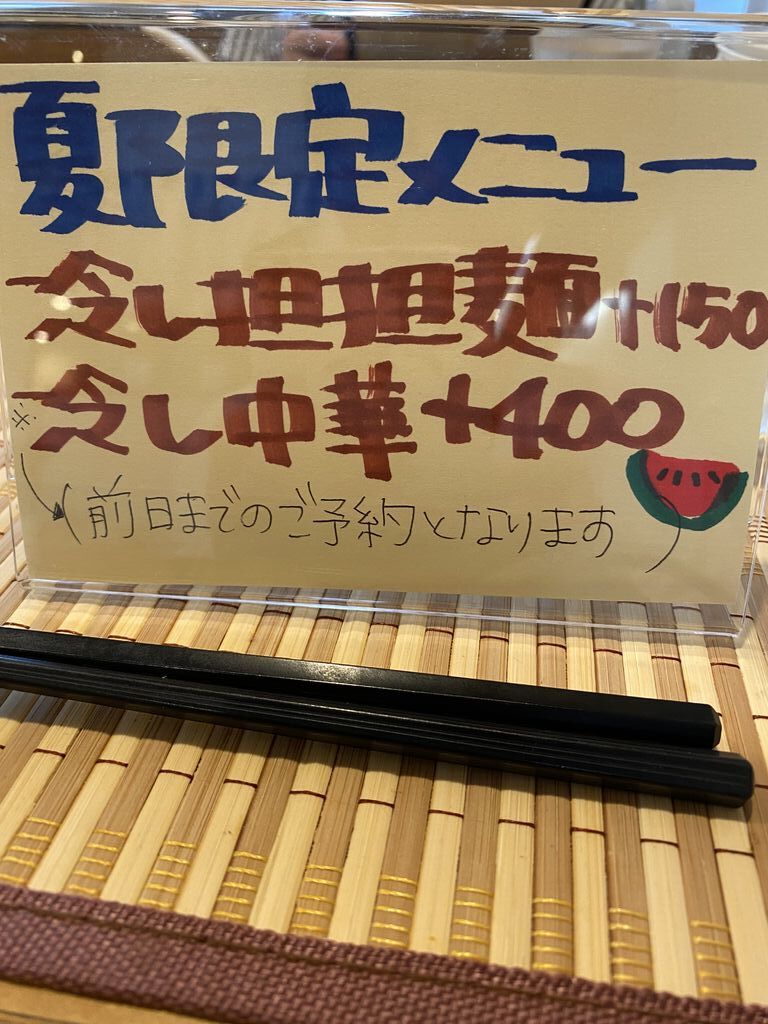 夏限定メニュー
冷し担担麺+150
※冷し中華+400
(前日までのご予約となります)